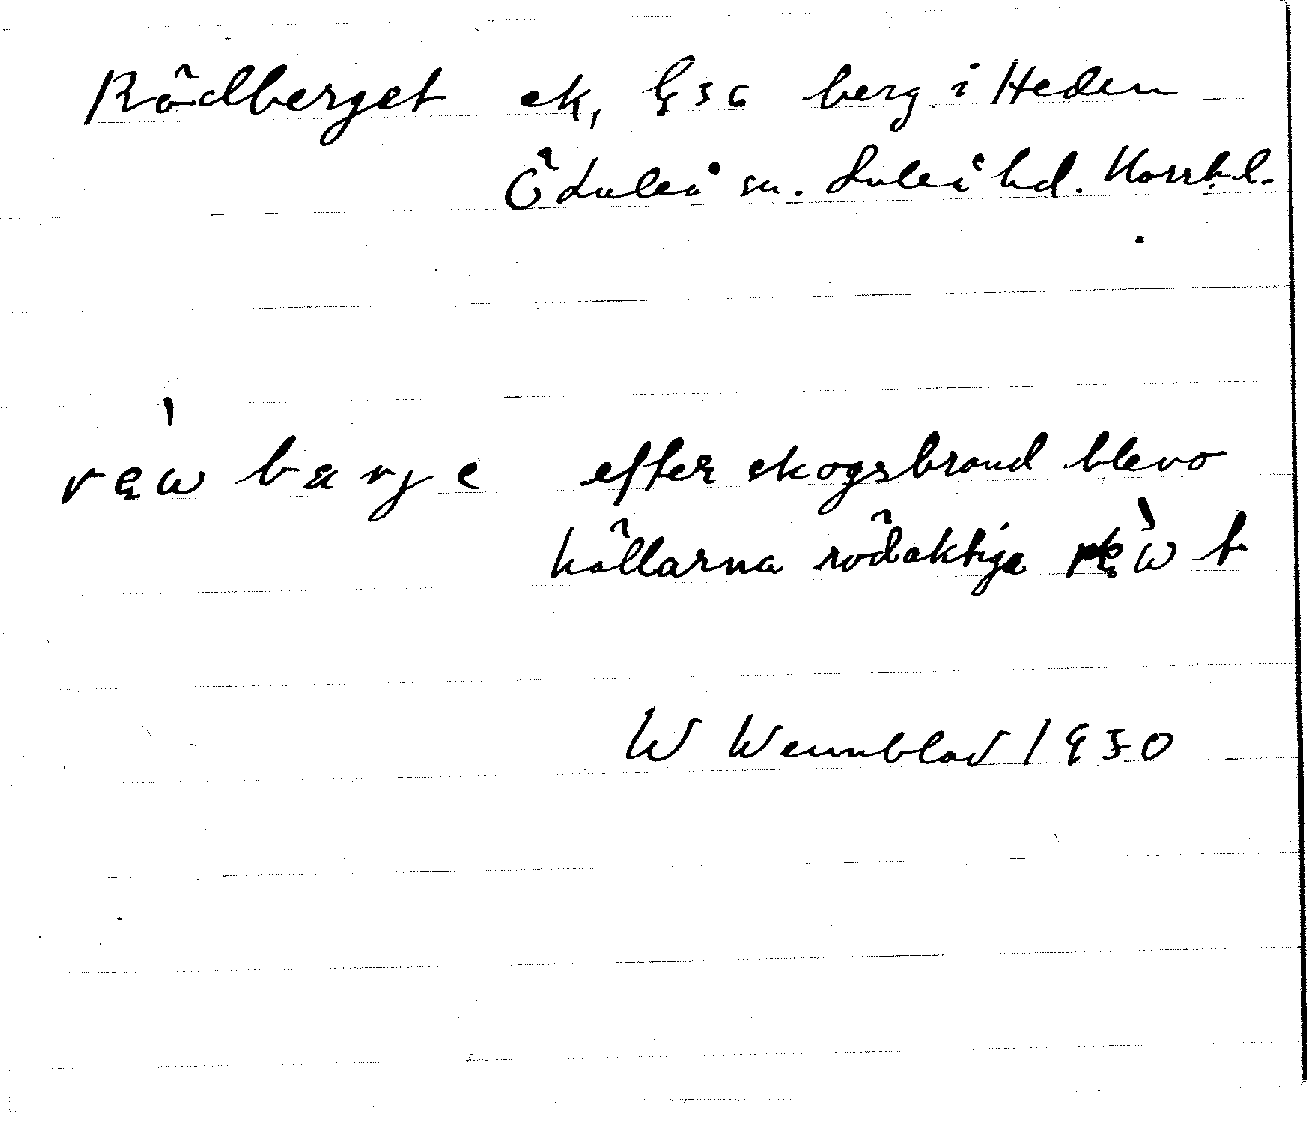 Rödberget ek, GSG berg i Heden
Ö Luleå sn. Luleå hd. Norrb.l.
efter skogsbrand blevo
hällarna rödaktiga
W Wennblad 1950